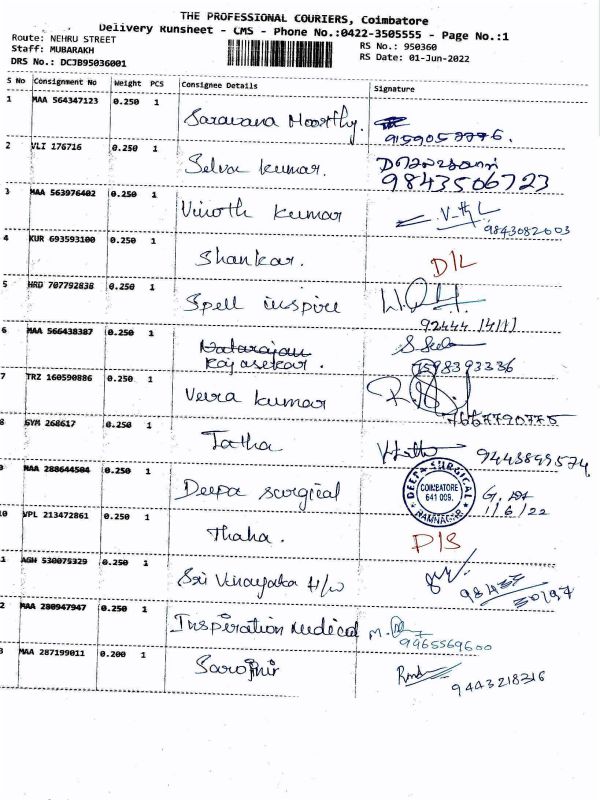 THE PROFESSIONAL COURIERS, Coimbatore
Delivery Runsheet - CMS - Phone No.:0422-3505555 - Page No.:1
Route: NEHRU STREET
RS No.: 950360
Staff: MUBARAKH
RS Date: 01-Jun-2022
DRS No.: DCJB95036001
S No Consignment No Weight PCS Consignee Details Signature
1 MAA 564347123 0.250 1 Saravana Moorthy.
2 VLI 176716 0.250 1 Selva kumar. 9843506723
3 MAA 563976402 0.250 1 Vinoth kumar 9843082603
4 KUR 693593100 0.250 1 Shankar. D/L
5 HRD 707792838 0.250 1 Spell inspire
92444 14111
6 MAA 566438387 0.250 1 Natarajan
Rajasekar. 7598393336
7 TRZ 160590886 0.250 1 Veera kumar
8 GYM 268617 0.250 1 Tatha 9443899574
9 MAA 288644504 0.250 1 Deepa surgical
DEEPA SURGICAL
COIMBATORE
641 009.
RAMNAGAR
1/6/22
10 VPL 213472861 0.250 1 Thaha.
1 AGH 530075329 0.250 1 Sri Vinayaka H/W
2 MAA 280947947 0.250 1 Inspiration Medical
9965569600
3 MAA 287199011 0.200 1
9443218316